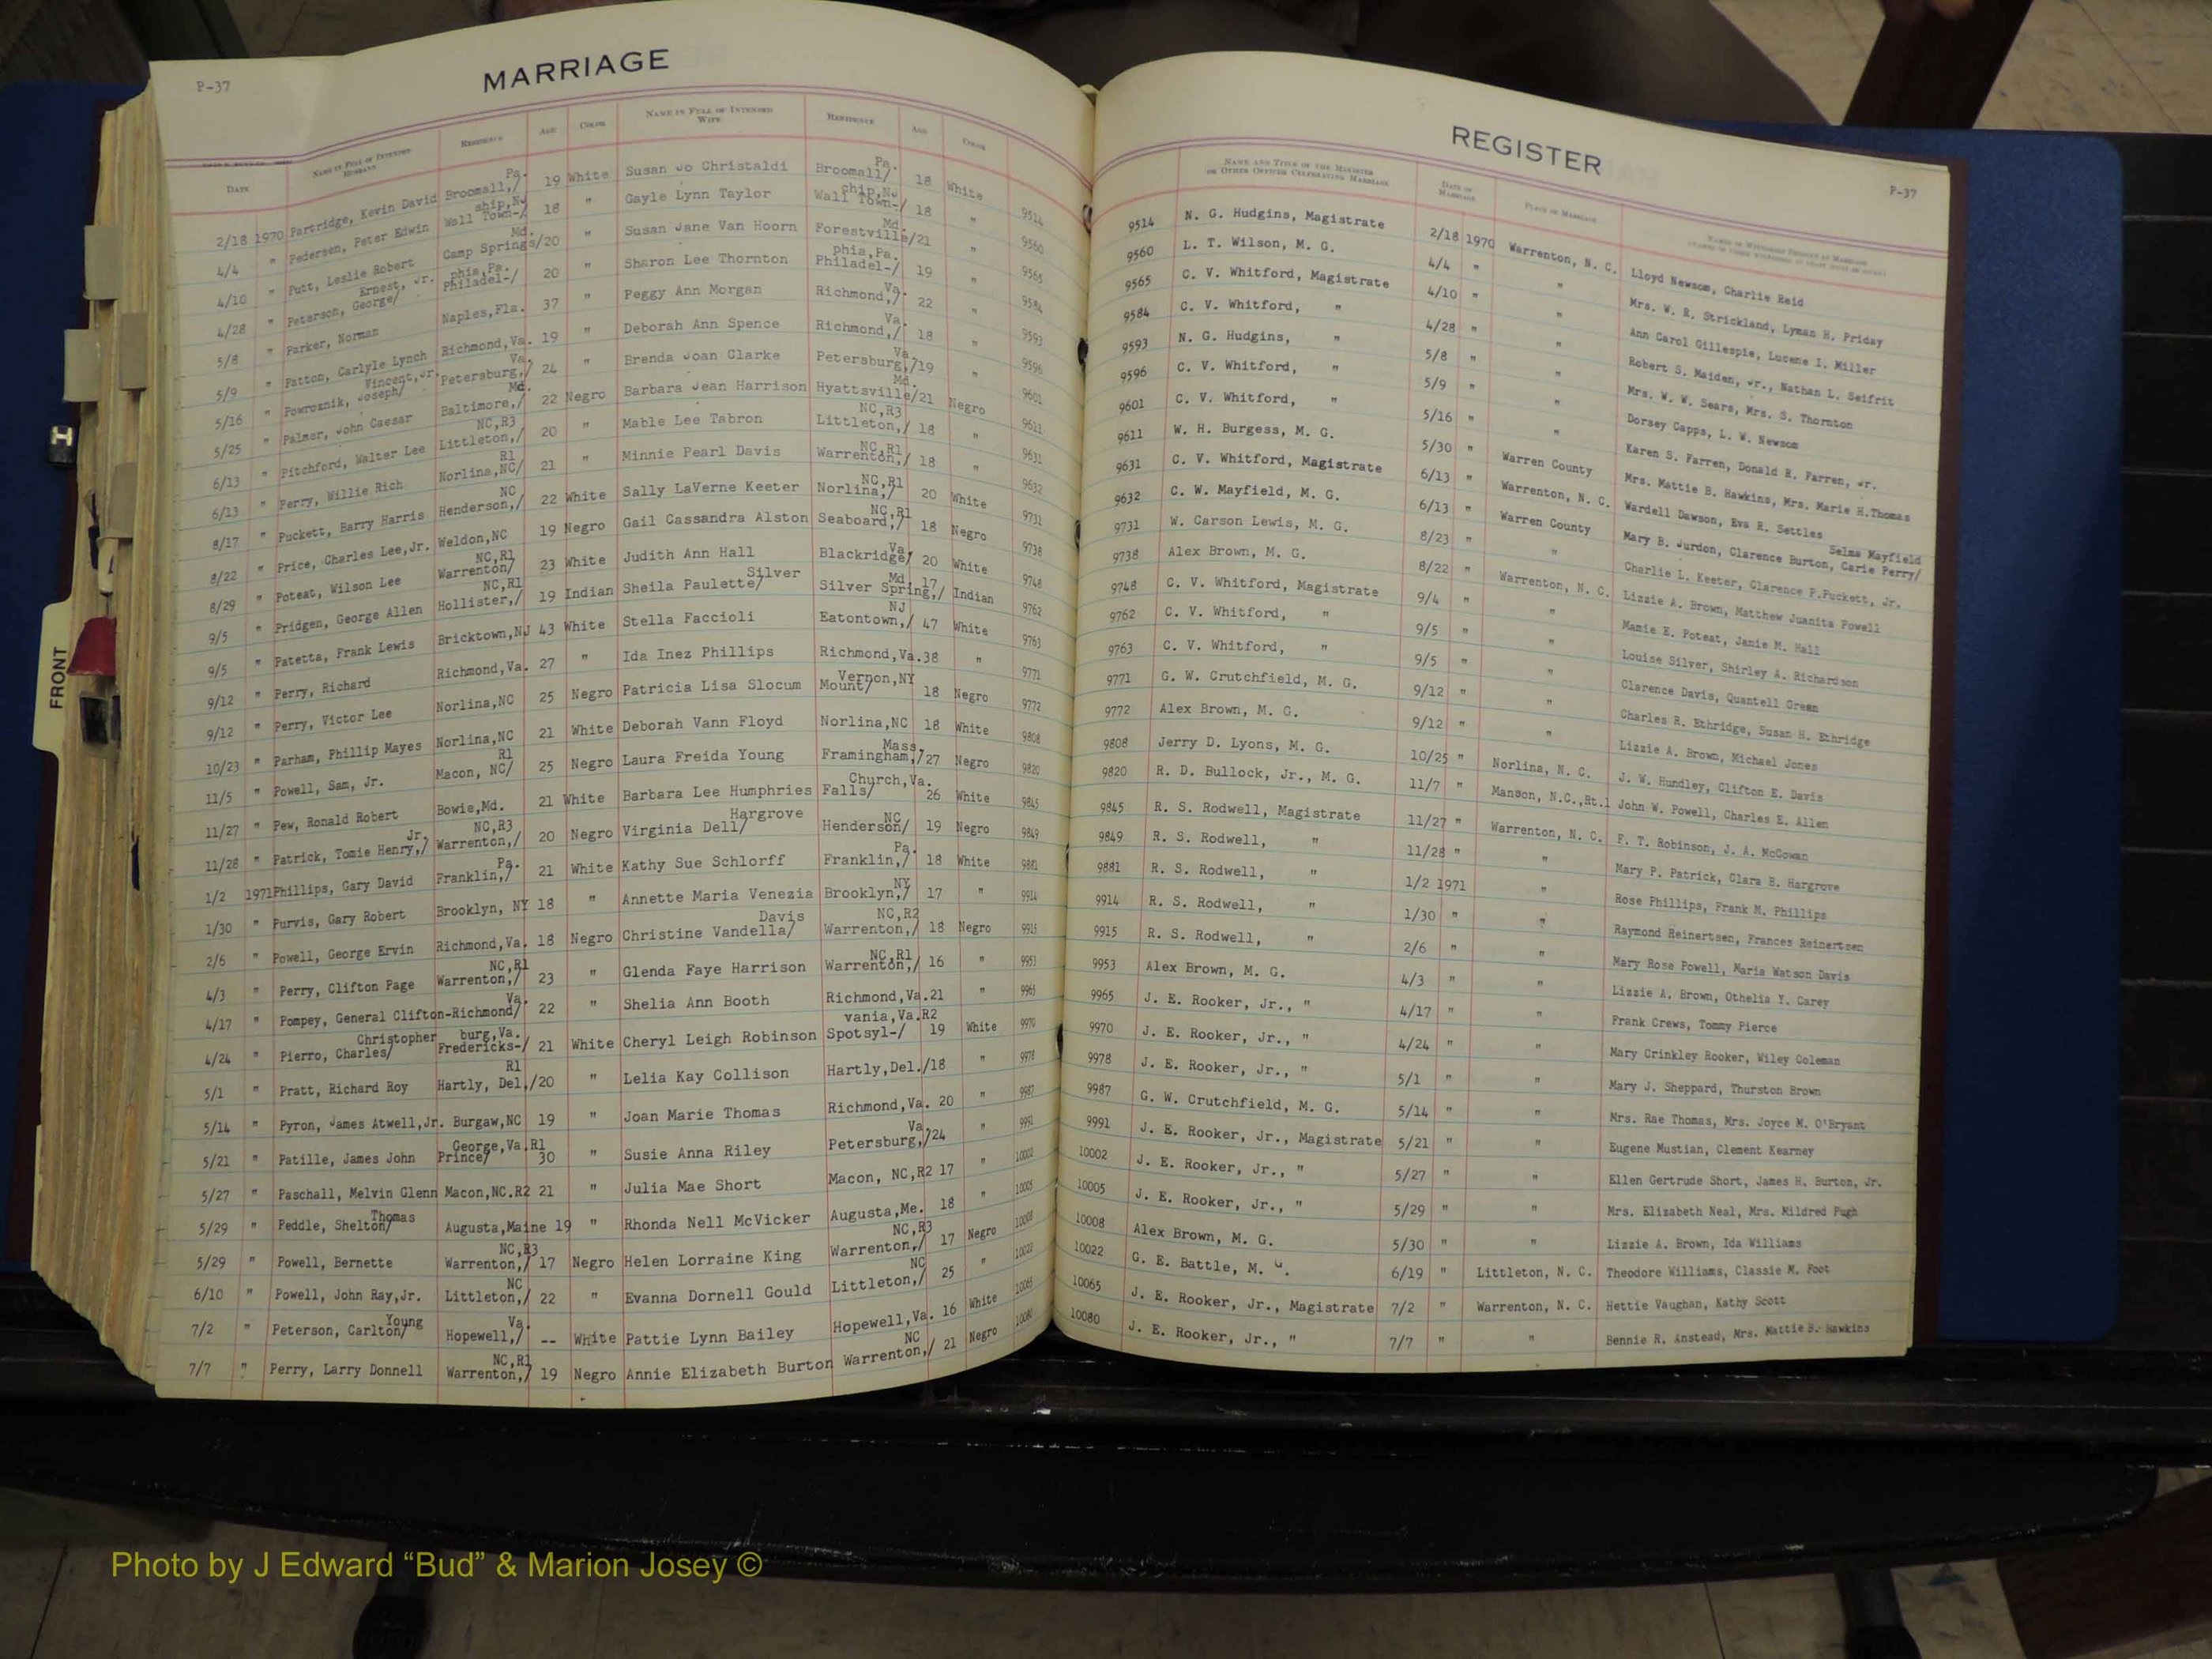 P-37
MARRIAGE
DATE NAME IN FULL OF INTENDED HUSBAND RESIDENCE AGE COLOR NAME IN FULL OF INTENDED WIFE RESIDENCE AGE COLOR
2/18 1970 Partridge, Kevin David Broomall,/ Pa. 19 White Susan Jo Christaldi Broomall/ Pa. 18 White 9514
4/4 " Pedersen, Peter Edwin Wall Town-/ ship,NJ 18 " Gayle Lynn Taylor Wall Town-/ ship,NJ 18 " 9560
4/10 " Putt, Leslie Robert Camp Springs/ Md. 20 " Susan Jane Van Hoorn Forestville/ Md. 21 " 9565
4/28 " Peterson, George/ Ernest, Jr. Philadel-/ phia,Pa. 20 " Sharon Lee Thornton Philadel-/ phia,Pa. 19 " 9584
5/8 " Parker, Norman Naples,Fla. 37 " Peggy Ann Morgan Richmond,/ Va. 22 " 9593
5/9 " Patton, Carlyle Lynch Richmond,Va. 19 " Deborah Ann Spence Richmond,/ Va. 18 " 9596
5/16 " Powroznik, Joseph/ Vincent,Jr. Petersburg,/ Va. 24 " Brenda Joan Clarke Petersburg,/ Va. 19 " 9601
5/25 " Palmer, John Caesar Baltimore,/ Md. 22 Negro Barbara Jean Harrison Hyattsville/ Md. 21 Negro 9611
6/13 " Pitchford, Walter Lee Littleton,/ NC,R3 20 " Mable Lee Tabron Littleton,/ NC,R3 18 " 9631
6/13 " Perry, Willie Rich Norlina,NC/ R1 21 " Minnie Pearl Davis Warrenton,/ NC,R1 18 " 9632
8/17 " Puckett, Barry Harris Henderson,/ NC 22 White Sally LaVerne Keeter Norlina,/ NC,R1 20 White 9731
8/22 " Price, Charles Lee,Jr. Weldon,NC 19 Negro Gail Cassandra Alston Seaboard,/ NC,R1 18 Negro 9738
8/29 " Poteat, Wilson Lee Warrenton/ NC,R1 23 White Judith Ann Hall Blackridge/ Va. 20 White 9748
9/5 " Pridgen, George Allen Hollister,/ NC,R1 19 Indian Sheila Paulette/ Silver Silver Spring,/ Md. 17 Indian 9762
9/5 " Patetta, Frank Lewis Bricktown,NJ 43 White Stella Faccioli Eatontown,/ NJ 47 White 9763
9/12 " Perry, Richard Richmond,Va. 27 " Ida Inez Phillips Richmond,Va.38 " 9771
9/12 " Perry, Victor Lee Norlina,NC 25 Negro Patricia Lisa Slocum Mount/ Vernon,NY 18 Negro 9772
10/23 " Parham, Phillip Mayes Norlina,NC 21 White Deborah Vann Floyd Norlina,NC 18 White 9808
11/5 " Powell, Sam, Jr. Macon, NC/ R1 25 Negro Laura Freida Young Framingham,/ Mass. 27 Negro 9820
11/27 " Pew, Ronald Robert Bowie,Md. 21 White Barbara Lee Humphries Falls/ Church,Va. 26 White 9845
11/28 " Patrick, Tomie Henry,/ Jr. Warrenton,/ NC,R3 20 Negro Virginia Dell/ Hargrove Henderson/ NC 19 Negro 9849
1/2 1971 Phillips, Gary David Franklin,/ Pa. 21 White Kathy Sue Schlorff Franklin,/ Pa. 18 White 9881
1/30 " Purvis, Gary Robert Brooklyn, NY 18 " Annette Maria Venezia Brooklyn,/ NY 17 " 9914
2/6 " Powell, George Ervin Richmond,Va. 18 Negro Christine Vandella/ Davis Warrenton,/ NC,R2 18 Negro 9915
4/3 " Perry, Clifton Page Warrenton,/ NC,R1 23 " Glenda Faye Harrison Warrenton,/ NC,R1 16 " 9953
4/17 " Pompey, General Clifton-Richmond/ Va. 22 " Shelia Ann Booth Richmond,Va.21 " 9965
4/24 " Pierro, Charles/ Christopher Fredericks-/ burg,Va. 21 White Cheryl Leigh Robinson Spotsyl-/ vania,Va.R2 19 White 9970
5/1 " Pratt, Richard Roy Hartly, Del./ R1 20 " Lelia Kay Collison Hartly,Del./18 " 9978
5/14 " Pyron, James Atwell,Jr. Burgaw,NC 19 " Joan Marie Thomas Richmond,Va. 20 " 9987
5/21 " Patille, James John Prince/ George,Va.R1 30 " Susie Anna Riley Petersburg,/ Va. 24 " 9991
5/27 " Paschall, Melvin Glenn Macon,NC.R2 21 " Julia Mae Short Macon, NC,R2 17 " 10002
5/29 " Peddle, Shelton/ Thomas Augusta,Maine 19 " Rhonda Nell McVicker Augusta,Me. 18 " 10005
5/29 " Powell, Bernette Warrenton,/ NC,R3 17 Negro Helen Lorraine King Warrenton,/ NC,R3 17 Negro 10008
6/10 " Powell, John Ray,Jr. Littleton,/ NC 22 " Evanna Dornell Gould Littleton,/ NC 25 " 10022
7/2 " Peterson, Carlton/ Young Hopewell,/ Va. -- White Pattie Lynn Bailey Hopewell,Va. 16 White 10065
7/7 " Perry, Larry Donnell Warrenton,/ NC,R1 19 Negro Annie Elizabeth Burton Warrenton,/ NC 21 Negro 10080
REGISTER
P-37
NAME AND TITLE OF THE MINISTER OR OTHER OFFICER CELEBRATING MARRIAGE DATE OF MARRIAGE PLACE OF MARRIAGE
9514 N. G. Hudgins, Magistrate 2/18 1970 Warrenton, N. C. Lloyd Newsom, Charlie Reid
9560 L. T. Wilson, M. G. 4/4 " " Mrs. W. R. Strickland, Lyman H. Priday
9565 C. V. Whitford, Magistrate 4/10 " " Ann Carol Gillespie, Lucene I. Miller
9584 C. V. Whitford, " 4/28 " " Robert S. Maiden, Jr., Nathan L. Seifrit
9593 N. G. Hudgins, " 5/8 " " Mrs. W. W. Sears, Mrs. S. Thornton
9596 C. V. Whitford, " 5/9 " " Dorsey Capps, L. W. Newsom
9601 C. V. Whitford, " 5/16 " " Karen S. Farren, Donald R. Farren, Jr.
9611 W. H. Burgess, M. G. 5/30 " Warren County Mrs. Mattie B. Hawkins, Mrs. Marie H.Thomas
9631 C. V. Whitford, Magistrate 6/13 " Warrenton, N. C. Wardell Dawson, Eva R. Settles
9632 C. W. Mayfield, M. G. 6/13 " Warren County Mary B. Jurdon, Clarence Burton, Carie Perry/ Selma Mayfield
9731 W. Carson Lewis, M. G. 8/23 " " Charlie L. Keeter, Clarence P.Puckett, Jr.
9738 Alex Brown, M. G. 8/22 " Warrenton, N. C. Lizzie A. Brown, Matthew Juanita Powell
9748 C. V. Whitford, Magistrate 9/4 " " Mamie E. Poteat, Janie M. Hall
9762 C. V. Whitford, " 9/5 " " Louise Silver, Shirley A. Richardson
9763 C. V. Whitford, " 9/5 " " Clarence Davis, Quantell Green
9771 G. W. Crutchfield, M. G. 9/12 " " Charles R. Ethridge, Susan H. Ethridge
9772 Alex Brown, M. G. 9/12 " " Lizzie A. Brown, Michael Jones
9808 Jerry D. Lyons, M. G. 10/25 " Norlina, N. C. J. W. Hundley, Clifton E. Davis
9820 R. D. Bullock, Jr., M. G. 11/7 " Manson, N.C.,Rt.1 John W. Powell, Charles E. Allen
9845 R. S. Rodwell, Magistrate 11/27 " Warrenton, N. C. F. T. Robinson, J. A. McCowan
9849 R. S. Rodwell, " 11/28 " " Mary P. Patrick, Clara B. Hargrove
9881 R. S. Rodwell, " 1/2 1971 " Rose Phillips, Frank M. Phillips
9914 R. S. Rodwell, " 1/30 " " Raymond Reinertsen, Frances Reinertsen
9915 R. S. Rodwell, " 2/6 " " Mary Rose Powell, Maria Watson Davis
9953 Alex Brown, M. G. 4/3 " " Lizzie A. Brown, Othelia Y. Carey
9965 J. E. Rooker, Jr., " 4/17 " " Frank Crews, Tommy Pierce
9970 J. E. Rooker, Jr., " 4/24 " " Mary Crinkley Rooker, Wiley Coleman
9978 J. E. Rooker, Jr., " 5/1 " " Mary J. Sheppard, Thurston Brown
9987 G. W. Crutchfield, M. G. 5/14 " " Mrs. Rae Thomas, Mrs. Joyce M. O'Bryant
9991 J. E. Rooker, Jr., Magistrate 5/21 " " Eugene Mustian, Clement Kearney
10002 J. E. Rooker, Jr., " 5/27 " " Ellen Gertrude Short, James H. Burton, Jr.
10005 J. E. Rooker, Jr., " 5/29 " " Mrs. Elizabeth Neal, Mrs. Mildred Pugh
10008 Alex Brown, M. G. 5/30 " " Lizzie A. Brown, Ida Williams
10022 G. E. Battle, M. G. 6/19 " Littleton, N. C. Theodore Williams, Classie M. Foot
10065 J. E. Rooker, Jr., Magistrate 7/2 " Warrenton, N. C. Hettie Vaughan, Kathy Scott
10080 J. E. Rooker, Jr., " 7/7 " " Bennie R. Anstead, Mrs. Mattie B. Hawkins
FRONT
Photo by J Edward “Bud” & Marion Josey ©